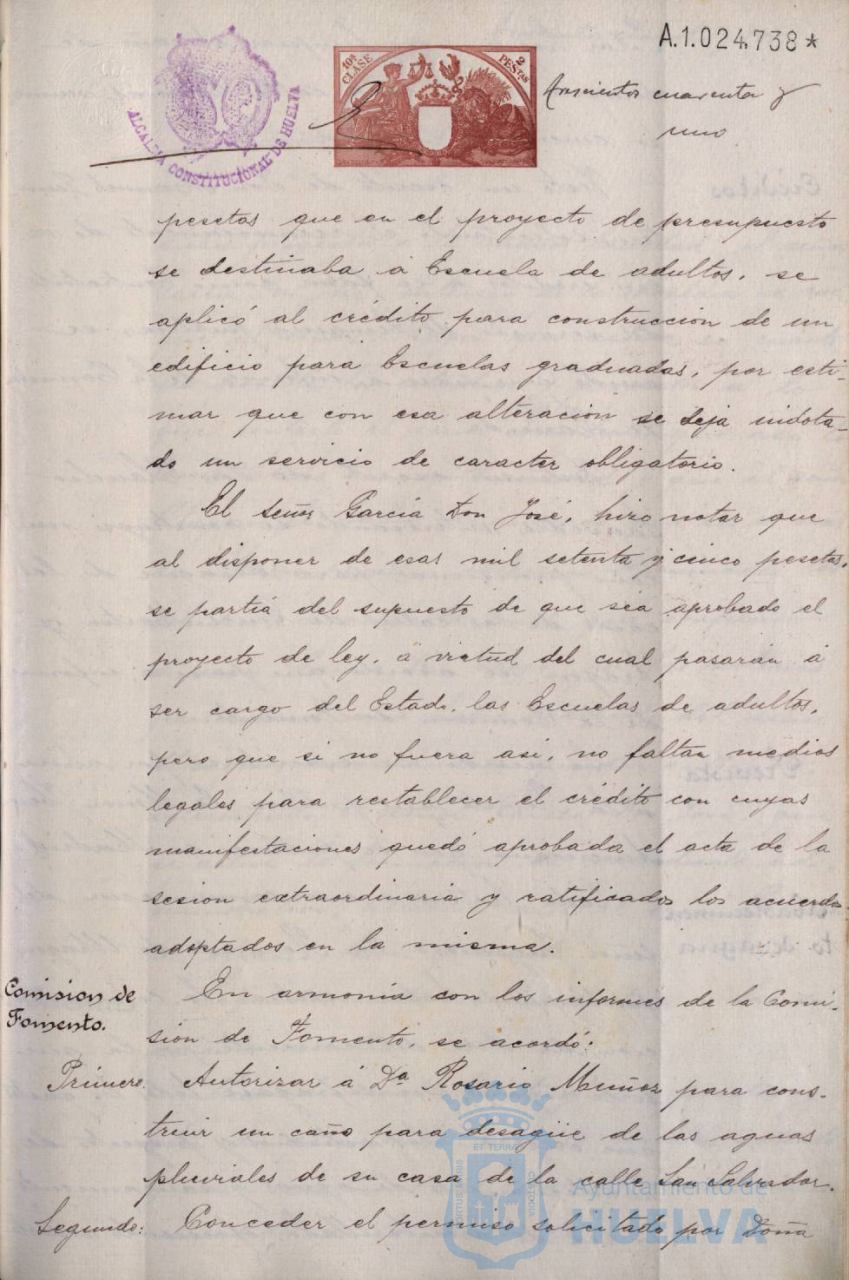 A.1.024.738*
ALCALDIA CONSTITUCIONAL DE HUELVA
10ª CLASE
2 PESTAS
cuarenta y
uno
pesetas que en el proyecto de presupuesto
se destinaba á Escuela de adultos, se
aplicó al crédito para construccion de un
edificio para Escuelas graduadas, por esti-
mar que con esa alteracion se deja indota-
do un servicio de caracter obligatorio.
El señor García Don José, hizo notar que
al disponer de esas mil setenta y cinco pesetas,
se partía del supuesto de que sea aprobado el
proyecto de ley, á virtud del cual pasarán á
ser cargo del Estado, las Escuelas de adultos,
pero que si no fuera así, no faltan medios
legales para restablecer el crédito con cuyas
manifestaciones quedó aprobada el acta de la
sesion extraordinaria y ratificados los acuerdos
adoptados en la misma.
Comision de
Fomento.
En armonía con los informes de la Comi-
sion de Fomento, se acordó:
Primero. Autorizar á Dª Rosario Muñoz para cons-
truir un caño para desagüe de las aguas
pluviales de su casa de la calle San Salvador.
Segundo: Conceder el permiso solicitado por Doña
Ayuntamiento de
HUELVA